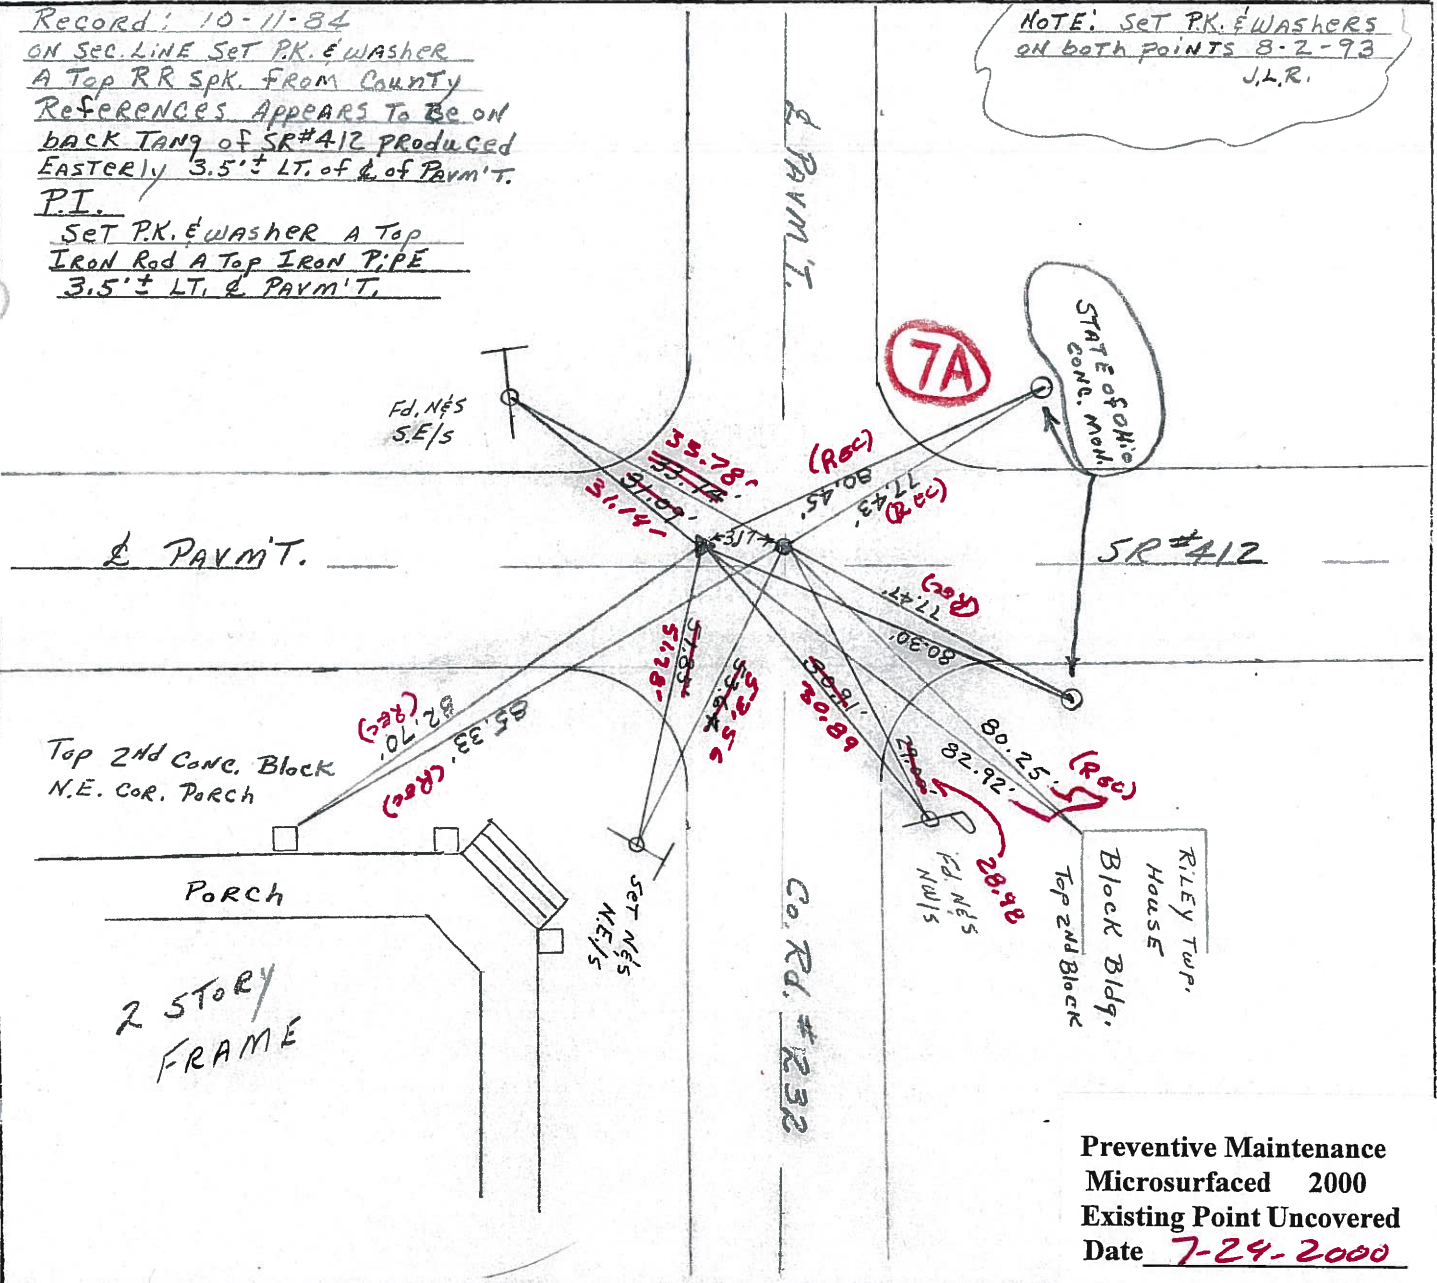 Record: 10-11-84
ON SEC. LINE SET P.K. & WASHER
A TOP RR SPK. FROM COUNTY
REFERENCES APPEARS TO BE ON
BACK TANG OF SR#412 PRODUCED
EASTERLY 3.5'± LT. of ℄ of PAVM'T.
P.I.
SET P.K. & WASHER A TOP
IRON ROD A TOP IRON PIPE
3.5'± LT. ℄ PAVM'T.
NOTE: SET P.K. & WASHERS
ON both POINTS 8-2-93
J.L.R.
℄ PAVM'T.
7A
STATE of OHIO
CONC. MON.
Fd. N&S
S.E/S
33.78'
33.74'
31.09'
31.14'
(REC)
80.45'
77.43'
(REC)
℄ PAVM'T.
SR #412
(REC)
77.47'
80.30'
51.78'
51.83'
53.56
30.91'
30.89
82.70'
(REC)
85.33' (REC)
Top 2nd Conc. Block
N.E. COR. PORCH
29.00'
28.98
80.25'
82.92'
(REC)
PORCH
SET N&S
N.E./S
Fd. N&S
NW/S
Top 2nd Block
Block Bldg.
RILEY TWP.
HOUSE
Co. Rd. #232
2 STORY
FRAME
Preventive Maintenance
Microsurfaced 2000
Existing Point Uncovered
Date 7-24-2000